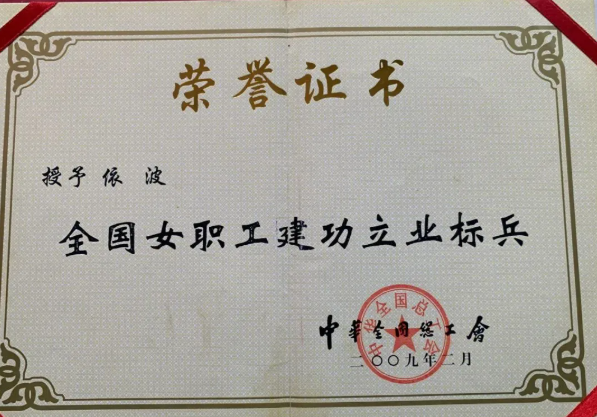 荣誉证书
授予 依 波
全国女职工建功立业标兵
中华全国总工会
中華全國總工會
二〇〇九年二月